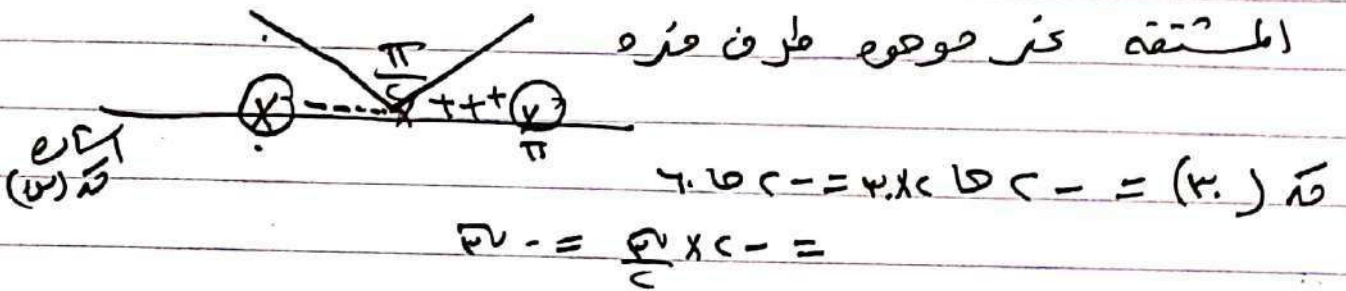 المشتقة غير موجودة طرف فترة
π/٢
٠ - - - - + + + π
إشارة قَ(س)
قَ(٣٠) = -٢ جا ٢×٣٠ = -٢ جا ٦٠
= -٢ × √٣/٢ = -√٣